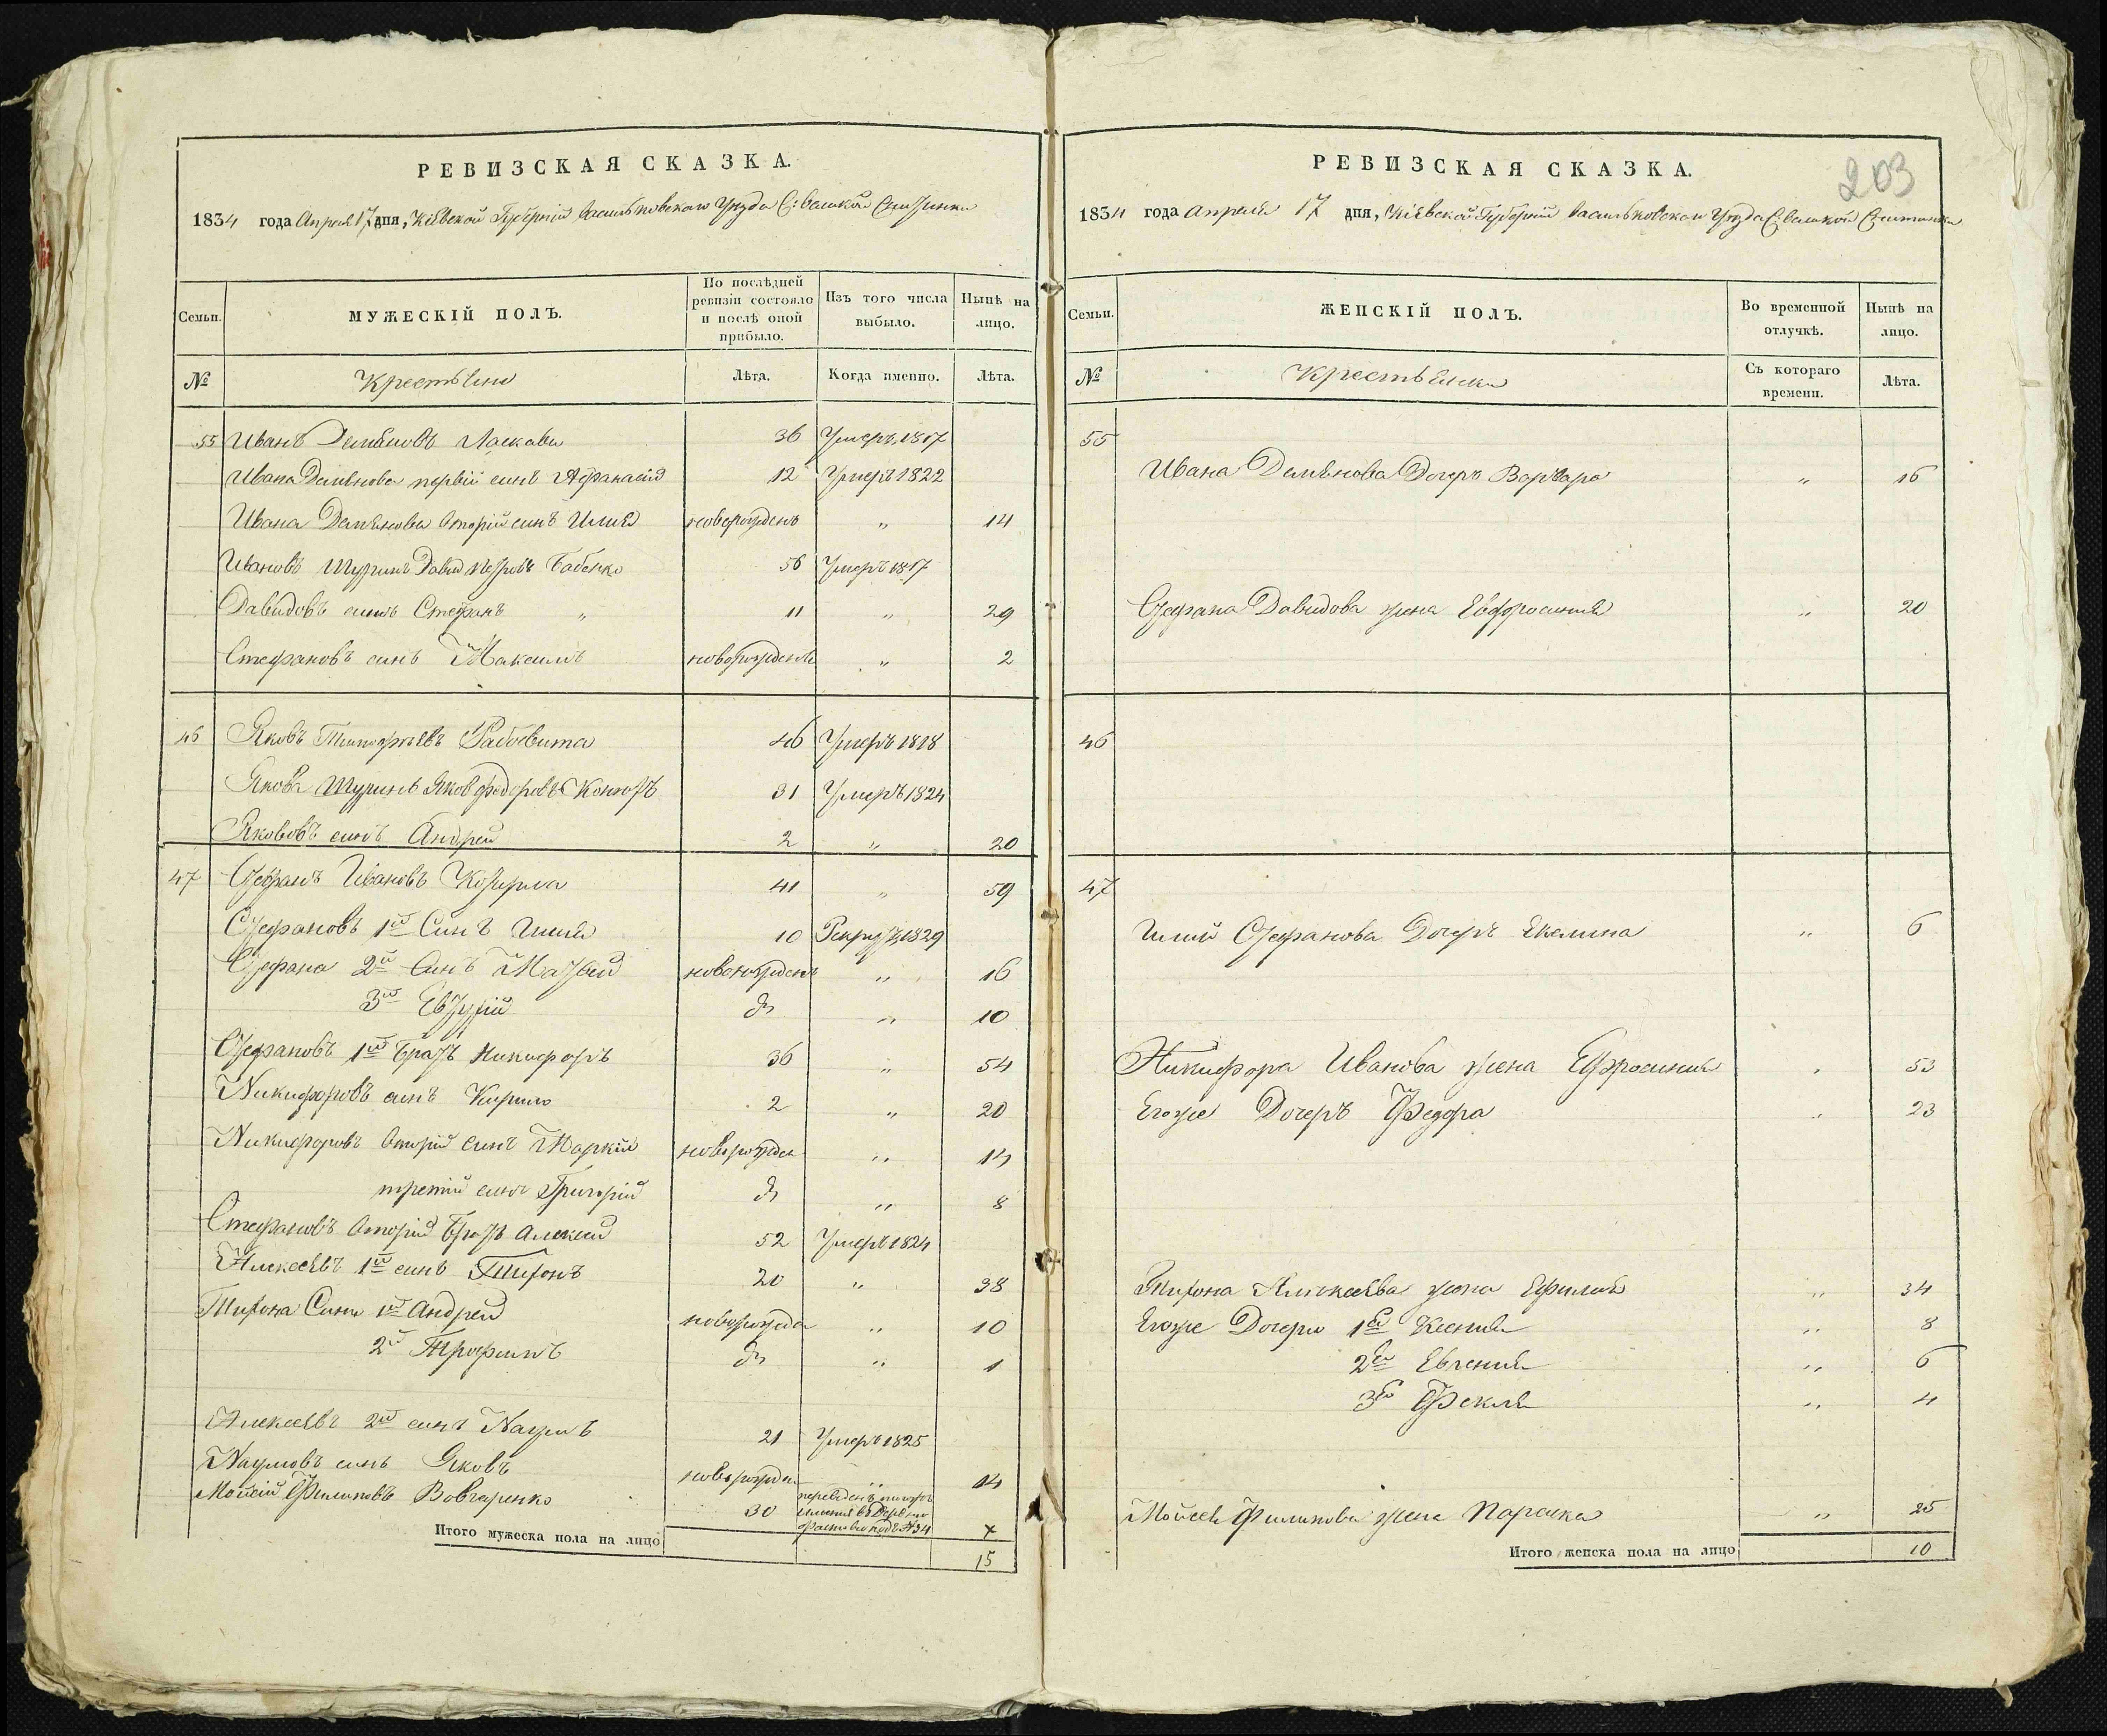 РЕВИЗСКАЯ СКАЗКА.
1834 года Апреля 17 дня, Кіевской Губерніи Васильковскаго Уѣзда С: Великой
Семьи.
МУЖЕСКІЙ ПОЛЪ.
По послѣдней ревизіи состояло и послѣ оной прибыло.
Изъ того числа выбыло.
Нынѣ на лицо.
№
Крестьяне
Лѣта.
Когда именно.
Лѣта.
55 Иванъ Демяновъ 36 Умеръ 1817
Ивана Демянова первій синъ Афанасій 12 Умеръ 1822
Ивана Демянова вторій синъ Илия новорожденъ „ 14
Ивановъ Шуринъ Давид Петровъ Бабенко 56 Умеръ 1817
Давидовъ синъ Стефанъ „ 11 „ 29
Стефановъ синъ Максимъ новорожденъ „ 2
46 Яковъ Тимофѣевъ 46 Умеръ 1818
Якова Шуринъ Яков Федоровъ 31 Умеръ 1824
Яковovъ синъ Андрей 2 „ 20
47 Стефанъ Ивановъ 41 „ 59
Стефановъ 1й Синъ Илия 10 Рекрут 1829
Стефана 2й Синъ Матвій новорожденъ „ 16
3й Евтухій д „ 10
Стефановъ 1й братъ Никифоръ 36 „ 54
Никифоровъ синъ Кирило 2 „ 20
Никифоровъ вторій синъ Маркій новорожден „ 14
третій синъ Григорій д „ 8
Стефановъ вторій братъ Алексій 52 Умеръ 1824
Алексеевъ 1й синъ Миронъ 20 „ 38
Мирона Сини 1й Андрей новорожден „ 10
2й Трофимъ д „ 1
Алексеевъ 2й синъ Наумъ 21 Умеръ 1825
Наумовъ синъ Яковъ новорожден „ 14
Мойсій Филиповъ Вовчаренко 30 переведенъ имения въ Деревню под № 34 x
Итого мужеска пола на лицо 15
203
РЕВИЗСКАЯ СКАЗКА.
1834 года Апреля 17 дня, Кіевской Губерніи Васильковскаго Уѣзда С Великой
Семьи.
ЖЕНСКІЙ ПОЛЪ.
Во временной отлучкѣ.
Нынѣ на лицо.
№
Крестьянки
Съ котораго времени.
Лѣта.
55
Ивана Демянова Дочеръ Варвара „ 16
Стефана Давидова жена Евфросиния „ 20
46
47
Илии Стефанова Дочеръ „ 6
Никифора Иванова жена Ефросиния „ 53
Егоже Дочеръ Федора „ 23
Мирона Алексеева жена „ 34
Егоже Дочери 1я Ксения „ 8
2я Евгения „ 6
3я Фекла „ 4
Мойсея Филипова жена Параска „ 25
Итого женска пола на лицо 10